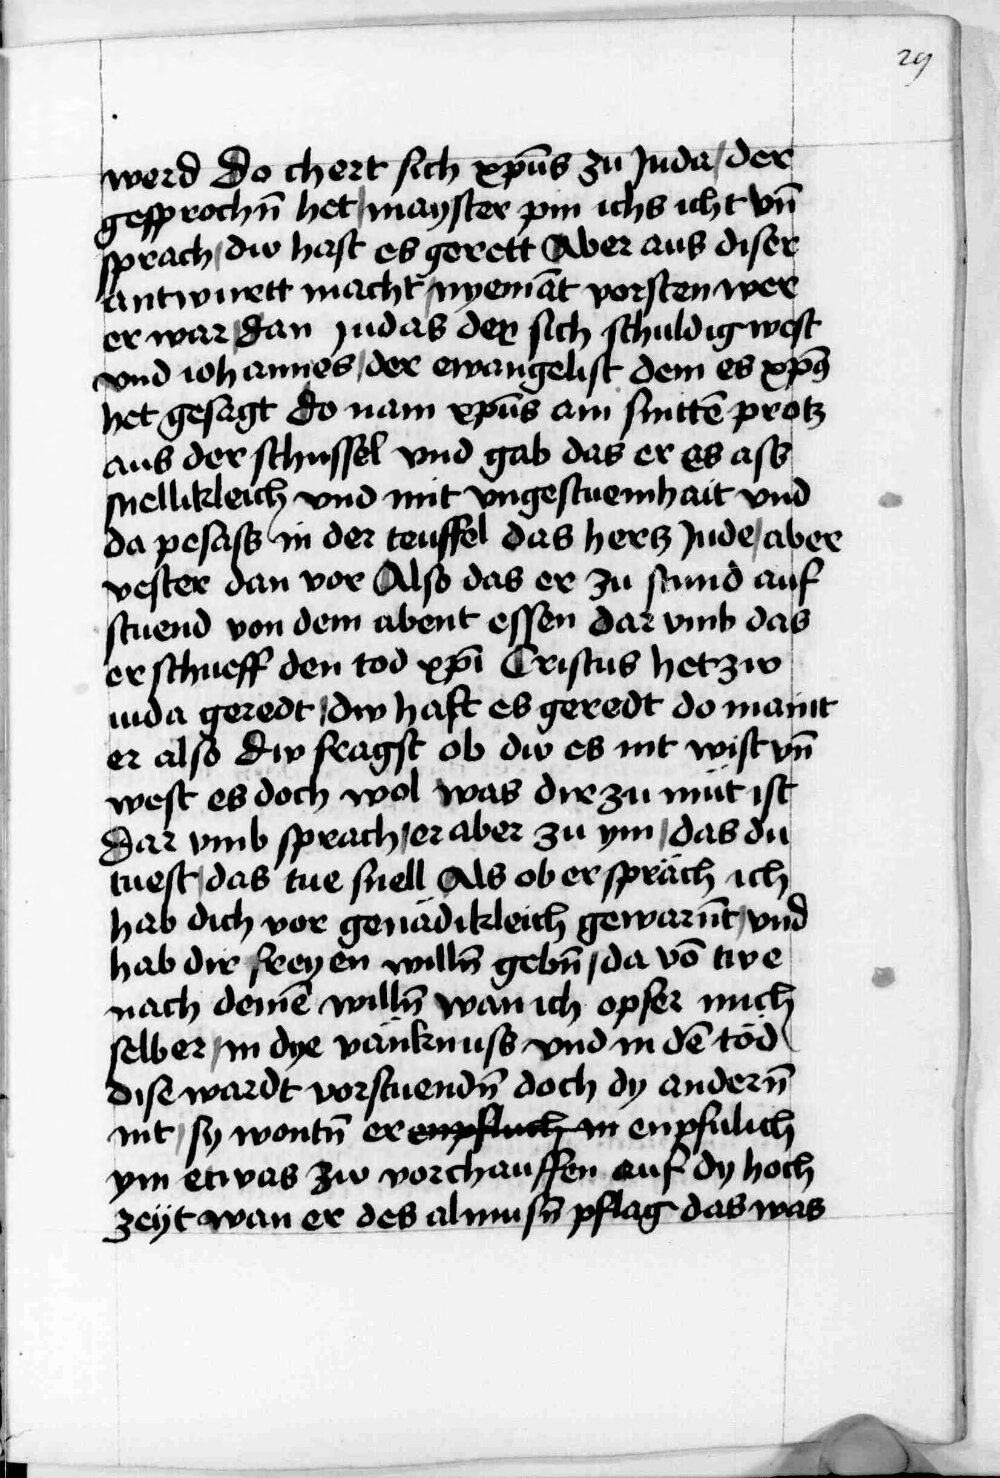 29
werd Do chert sich xp̄us zu Juda / der
gesprochn̄ het / mayster pin ichs icht vn̄
sprach / dw hast es gerett Aber aus diser
antwurtt macht nyemāt vorsten wer
er war / dan Judas der sich schuldig west
vnd iohannes / der ewangelist dem es xp̄s
het gesagt Do nam xp̄us ain snittē protz
aus der schussel vnd gab das er es ass
snellikleich vnd mit vngestuemhait vnd
da pesass in der teuffel das hertz Jude / aber
vester dan vor Also das er zu stund auf
stuend von dem abent essen Dar vmb das
er schueff den tod xp̄i Cristus het zw
iuda geredt / dw hast es geredt do maint
er also Dw fragst ob dw es nit wist vn̄
west es doch wol was dir zu müt ist
Dar vmb sprach / er aber zu ym / das du
tuest / das tue snell Als ob er spräch ich
hab dich vor genädikleich gewarn̄t / vnd
hab dir freyen willn̄ gebn̄ / da vō twe
nach deinē willn̄ wan ich opfer mich
selber / in dye vänknuss vnd in dē töd
dise wardt vorstuendn̄ doch dy andern̄
nit / sy wontn̄ er enpfluch in enpfulich
ym etwas zw vorchauffen auf dy hoch
zeÿt wan er des almusn̄ pflag das was